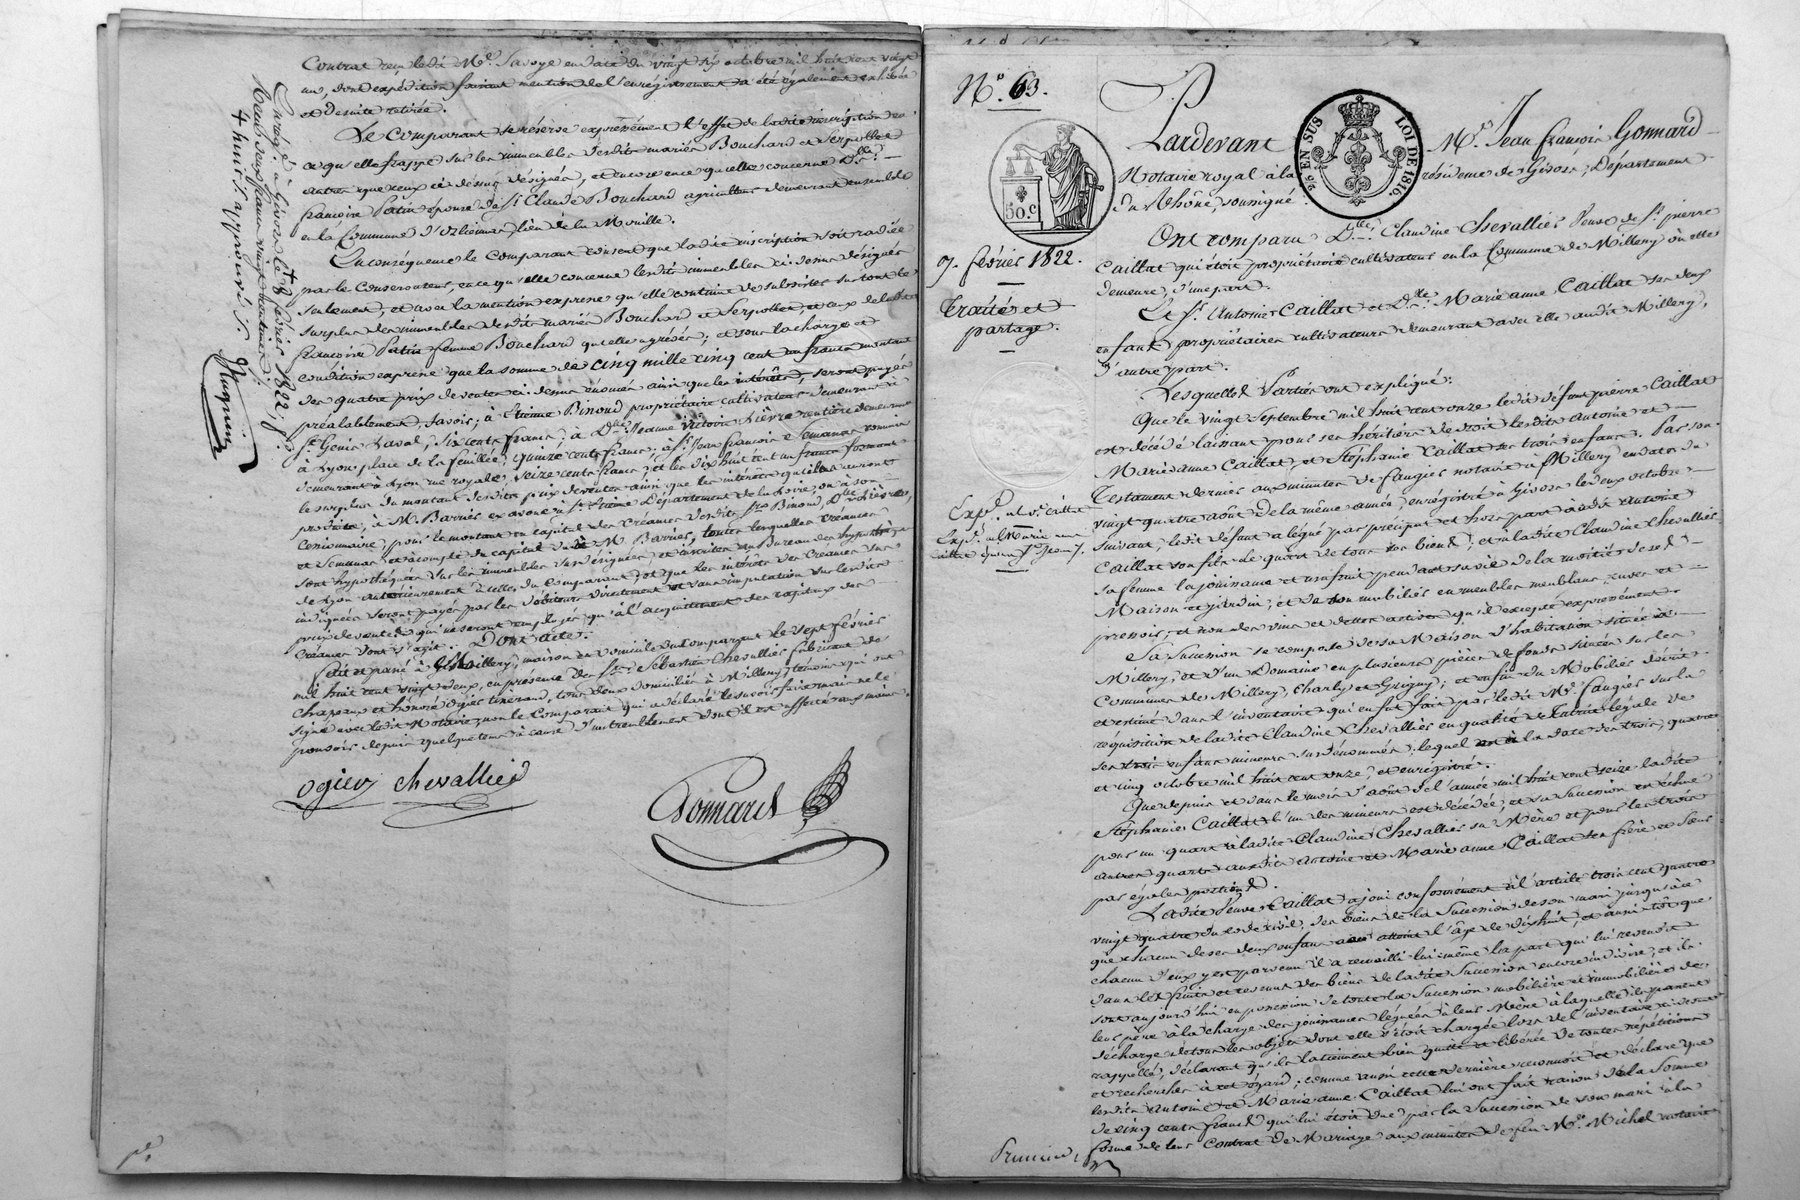 Contrat reçu ledit Me. Savoye en date du vingt six octobre mil huit cent vingt
un, dont expédition faisant mention de l'enregistrement a été également exhibée
et de suite retirée.
Le comparant se réserve expressément l'effet de ladite inscription en
ce qu'elle frappe sur les immeubles desdits mariés Bouchard et Serpollet
autres que ceux ci dessus désignés, et encore en ce qu'elle concerne Dlle.
françoise Patin épouse de St. Claude Bouchard agriculteur demeurant ensemble
en la Commune d'Orliennas, lieu de la Mouille.
En conséquence le Comparant consent que ladite inscription soit radiée
par le Conservateur, en ce qu'elle concerne lesdits immeubles ci dessus désignés
seulement, et avec la mention expresse qu'elle continue de subsister sur tout le
surplus des immeubles desdits mariés Bouchard et Serpollet, et ceux de ladite
françoise Patin femme Bouchard qu'elle a grévés; et sous la charge et
condition expresse que la somme de cinq mille cinq cent un francs montant
des quatre prix de ventes ci dessus énoncés ainsi que les intérêts, seront payés
préalablement, savoir; à Etienne Binoud propriétaire cultivateur demeurant à
St. Genis Laval, six cents francs; à Dlle. Jeanne Victoire Lièvre rentière demeurant
à Lyon place de la feuillée, quinze cents francs; à Sr. Jean François Semanas commis
demeurant à Lyon rue royale, seize cents francs; et les dix huit cent un francs formant
le surplus du montant desdits prix de ventes ainsi que les intérêts qu'ils auront
produits, à M. Barrier ex avoué à St. Etienne Département de la Loire, ou à son
cessionnaire, pour le montant en capital des créances desdits Srs. Binoud, Dlle. Lièvre,
et Semanas et à compte du capital dudit M. Barrier, toutes lesquelles créances
sont hypothéquées sur les immeubles susdésignés, et inscrites au Bureau des hypothèques
de Lyon antérieurement à celles du Comparant; et que les intérêts des créances sus
indiquées seront payés par les débiteurs directement et sans imputation sur lesdits
prix de ventes qui ne seront employés qu'à l'acquittement des capitaux des
créances dont s'agit. Dont acte.
fait et passé à Millery, maison et domicile du Comparant le sept février
mil huit cent vingt deux, en présence des Srs. Sébastien Chevallier fabricant de
chapeaux et honoré Ogier tisserand, tous deux domiciliés à Millery, témoins qui ont
signé avec ledit Notaire, non le Comparant qui a déclaré le savoir faire mais ne le
pouvoir depuis quelque tems à cause d'un tremblement dont il est affecté aux mains
ogier chevallier
Gonnard
Enrégé. à Givors le 8 février 1822, f.
Reçu deux francs vingt centimes
+ huit approuvé
N°. 63.
50.c
7. février 1822.
Traité et
partage.
25 EN SUS LOI DE 1816.
Pardevant Me. Jean François Gonnard
Notaire royal à la résidence de Givors, Département
du Rhône, soussigné
Ont comparu Dlle. Claudine Chevallier Veuve de Sr. pierre
Caillat qui étoit propriétaire cultivateur en la Commune de Millery où elle
demeure, d'une part.
Et Sr. Antoine Caillat et Dlle. Marie anne Caillat ses deux
enfants propriétaires cultivateurs demeurant avec elle audit Millery,
d'autre part.
Lesquelles Parties ont expliqué:
Que le vingt Septembre mil huit cent onze ledit défunt pierre Caillat
est décédé laissant pour ses héritiers de droit lesdits Antoine et
Marie anne Caillat, et Stéphanie Caillat ses trois enfans. Par son
Testament dernier aux minutes de faugier notaire à Millery en date du
vingt quatre août de la même année, enregistré à Givors le deux octobre
suivant, ledit défunt a légué par préciput et hors part audit Antoine
Caillat son fils le quart de tous ses biens; et à ladite Claudine Chevallier
sa femme la jouissance et usufruit pendant sa vie de la moitié de sesd.
Maison et jardin; et de son mobilier en meubles meublans, cuves et
pressoir, et non des vins et dettes actives qu'il excepte expressément
Sa Succession se compose de sa Maison d'habitation située à
Millery, et d'un Domaine en plusieurs pièces de fonds situées sur les
Communes de Millery, Charly et Grigny; et enfin du Mobilier décrit
et estimé dans l'inventaire qui en fut fait par ledit Me. faugier sur la
réquisition de ladite Claudine Chevallier en qualité de Tutrice légale de
ses trois enfans mineurs susdénommés, lequel est à la date des trois, quatre
et cinq octobre mil huit cent onze, et enregistré.
Que depuis et dans le mois d'août de l'année mil huit cent seize ladite
Stéphanie Caillat l'un des mineurs est décédée; et sa succession est échue
pour un quart à ladite Claudine Chevallier sa Mère et pour les trois
autres quarts auxdits Antoine et Marie anne Caillat ses frère et sœur
par égales portions.
Ladite Veuve Caillat a joui conformément à l'article trois cent quatre
vingt quatre du code civil, des biens de la Succession de son mari jusqu'à ce
que chacun de ses deux enfans ait atteint l'âge de dix huit, et aussitôt que
chacun d'eux y est parvenu il a recueilli lui même la part qui lui revenoit
dans les fruits et revenus des biens de ladite Succession encore indivise; et ils
sont aujourd'hui en possession de toute la Succession mobiliaire et immobiliaire de
leur père à la charge des jouissances léguées à leur Mère à laquelle ils passent
décharge de tous les objets dont elle s'étoit chargée lors de l'inventaire ci dessus
rappellé, déclarant qu'ils la tiennent bien quitte et libérée de toutes répétitions
et recherches à cet égard; comme aussi cette dernière reconnoit et déclare que
lesdits Antoine et Marie anne Caillat lui ont fait raison de la Somme
de cinq cents francs qui lui étoit due par la Succession de son mari à la
forme de leur Contrat de Mariage aux minutes de feu Me. Michel notaire